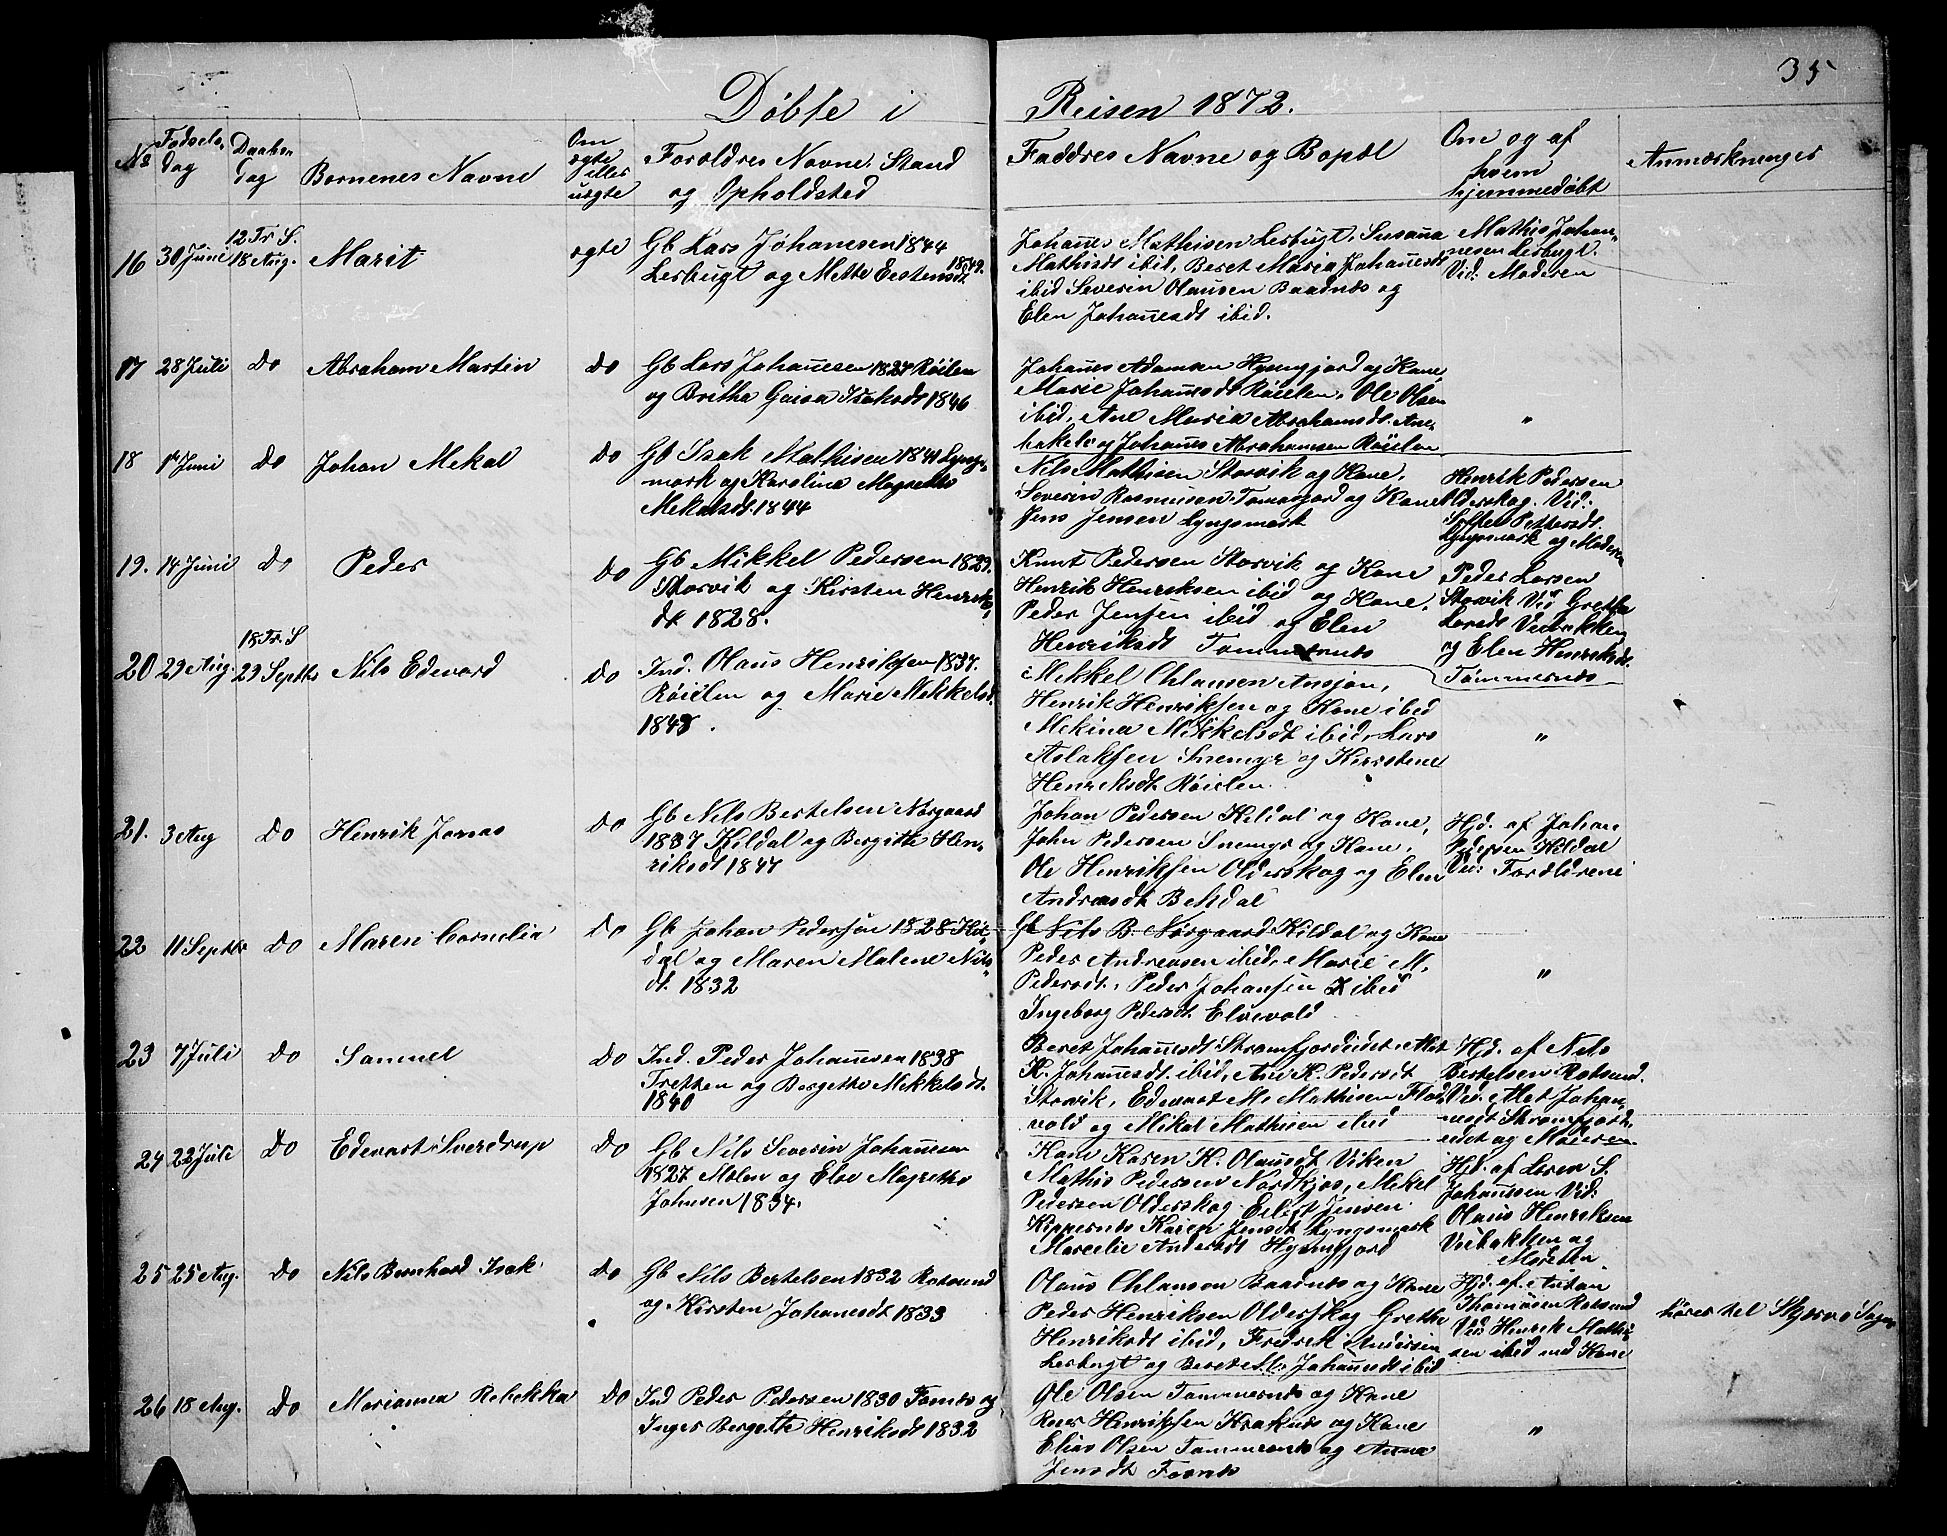 35
Døbte i Reisen 1872.
No Fødsels dag Daabs dag Børnenes Navne Om ægte eller uægte Forældres Navne, Stand og Opholdsted Faddres Navne og Bopæl Om og af hvem hjemmedøbt Anmærkninger
16 30 Juni 12 Tr. S. 18 Aug. Marit ægte
Gb Lars Johanesen 1844
Lerbugt og Mette Eertensdt 1849.
Johanes Mathisen Lerbugt, Susana
Mathisdt ibid, Beret Maria Johanesdt
ibid Severin Olausen Baadnes og
Elen Johanesdt ibid.
Mathis Johan-
nesen Lerbugt.
Vid: Moderen
17 28 Juli Do Abraham Martin Do
Gb Lars Johanesen 1827 Röielen
og Brithe Gaisa Isaksdt 1846
Johanes Adamsen Hysingjord og Kone,
Marie Johanesdt Röielen, Ole Olsen
ibid, Ane Maria Abrahamsdt. Ane-
bakels og Johanes Abrahamsen Röielen
"
18 17 Juni Do Johan Mekal Do
Gb Isak Mathisen 1841 Lyngs-
mark og Karoline Magrethe
Mekalsdt. 1844
Nils Mathisen Storvik og Kone,
Severin Rasmusen Tømmerfjord og Kone
Jens Jensen Lyngsmark
Henrik Pedersen
Olderskog. Vid:
Pettersdt.
Lyngsmark og Moderen
19. 14 Juni Do Peder Do
Gb Mikkel Pedersen 1829.
Storvik og Kirsten Henriks-
dt. 1828.
Knut Pedersen Storvik og Kone
Henrik Henriksen ibid og Kone,
Peder Jensen ibid og Elen
Henriksdt Tømmernes
Peder Larsen
Storvik Vid Grethe
Larsdt Veibakken
og Elen Henriksdt.
Tømmernes
20 29 Aug. 18 Tr. S 29 Septbr Nils Edevard Do
Ind. Olaus Henriksen 1837.
Röielen og Marie Mekkelsdt.
1848.
Mekkel Chlausen Ansjon,
Henrik Henriksen og Kone ibid
Mekina Mikkelsdt ibid, Lars
Aslaksen Snemyr og Kirstene
Henriksdt Röielen
"
21. 3 Aug Do Henrik Jonas Do
Gb Nils Bertelsen Norgaard
1837 Kildal og Bergitte Hen-
riksdt 1847
Johan Pedersen Kildal og Kone,
John Pedersen Snemyr og Kone,
Ole Henriksen Olderskog og Elen
Andreasdt Bekdal
Hjd. af Johan
Pedersen Kildal
Vid: Forældrene
22 11 Septbr Do Maren Cornelia Do
Gb Johan Pedersen 1828 Kil-
dal og Maren Malene Nils-
dt. 1832
Gb Nils B. Norgaard Kildal og Kone
Peder Andreasen ibid, Marie M.
Pedersdt, Peder Johansen ibid
Ingeborg Pedersdt Elvevold
"
23 7 Juli Do Samuel Do
Ind. Peder Johanesen 1838
Tretten og Bergette Mekkelsdt.
1840
Beret Johanesdt Strømfjordeidet, Met
K. Johanesdt. ibid, Ane K. Pedersdt
Storvik, Edevart M. Mathisen Flad-
vold og Mikal Mathisen ibid
Hjd. af Nils
Bertelsen Rotsund.
Vid. Met Johan-
nesdt Strømfjord-
eidet og Moderen
24 22 Juli Do Edevart Sverdrup Do
Gb Nils Severin Johanesen
1827 Molen og Else Magrethe
Johnsen 1834.
Kone Karen K. Olausdt Viken
Mathis Pedersen Nordkjos, Mikel
Pedersen Olderskog. Eilert Jensen
Kippernes Karen Jensdt Lyngsmark
Marcelie Andersdt Hysingjord
Hjd. af Loren S.
Johanssen Vid:
Olaus Henriksen
Veibakken og
Moderen
25 25 Aug. Do Nils Bernhard Isak Do
Gb Nils Bertelsen 1832 Rotsund
og Kirsten Johanesdt 1833
Olaus Chlauson Baadnes og Kone
Peder Henriksen Olderskog Grethe
Henriksdt ibid, Fredrik Andersen
Lerbugt og Beret M. Johanesdt ibid
Hjd. af Antan
Thomasen Rotsund
Vid: Henrik Mathi-
sen ibid med Kone
hører til Skjervø Sogn
26 18 Aug. Do Marianna Rebekka Do
Ind Peder Pedersen 1830 Fornes og
Inger Bergette Henriksdt 1832
Ole Olsen Tømmernes og Kone
Peer Henriksen Kraknes og Kone
Elias Olsen Tømmernes og Anna
Jensdt Fornes
"